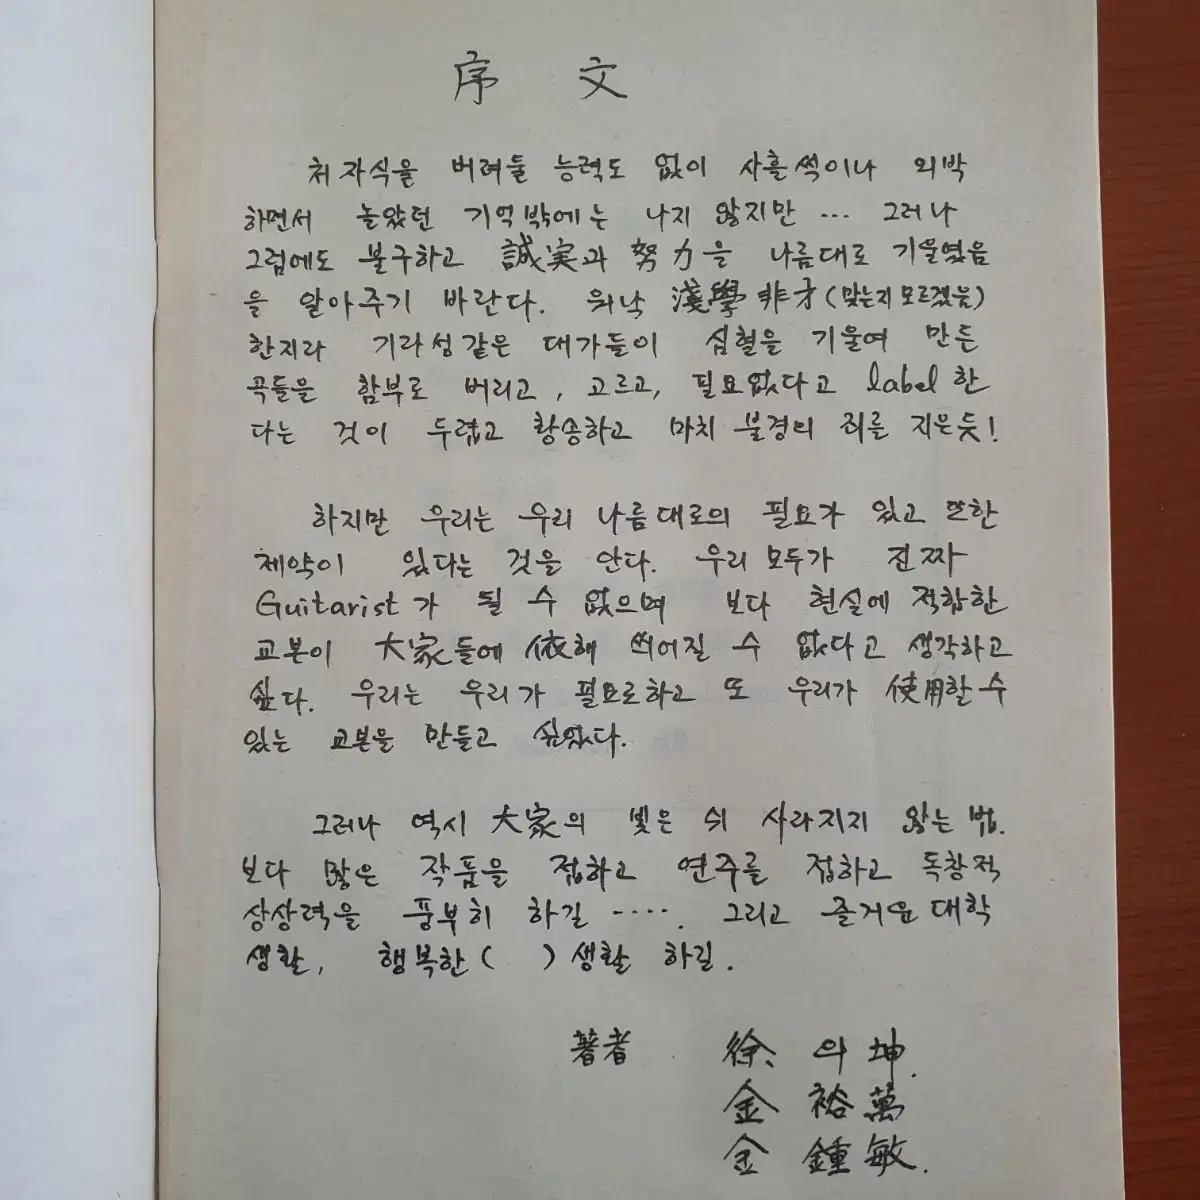 序 文
처자식을 버려둘 능력도 없이 사흘씩이나 외박
하면서 놀았던 기억밖에는 나지 않지만 … 그러나
그럼에도 불구하고 誠実과 努力을 나름대로 기울였음
을 알아주기 바란다. 워낙 漢學非才(맞는지 모르겠음)
한지라 기라성같은 대가들이 심혈을 기울여 만든
곡들을 함부로 버리고, 고르고, 필요없다고 label 한
다는 것이 두렵고 황송하고 마치 불경의 죄를 지은듯!
하지만 우리는 우리 나름대로의 필요가 있고 또한
제약이 있다는 것을 안다. 우리 모두가 진짜
Guitarist가 될 수 없으며 보다 현실에 적합한
교본이 大家들에 依해 씌어질 수 없다고 생각하고
싶다. 우리는 우리가 필요로하고 또 우리가 使用할 수
있는 교본을 만들고 싶었다.
그러나 역시 大家의 빛은 쉬 사라지지 않는 법.
보다 많은 작품을 접하고 연주를 접하고 독창적
상상력을 풍부히 하길 ‥‥. 그리고 즐거운 대학
생활, 행복한 ( ) 생활 하길.
著者 徐 의 坤.
金 裕 萬
金 鍾 敏.